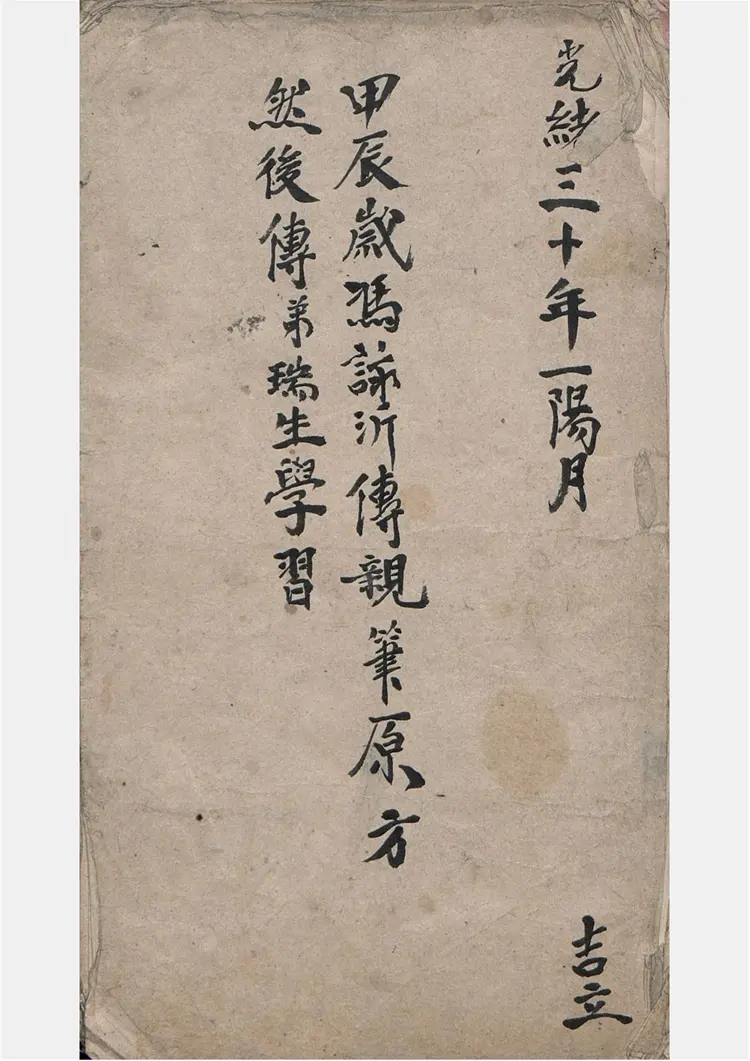 光緒三十年一陽月
吉立
甲辰歲馮諒沂傳親筆原方
然後傳弟瑞生學習